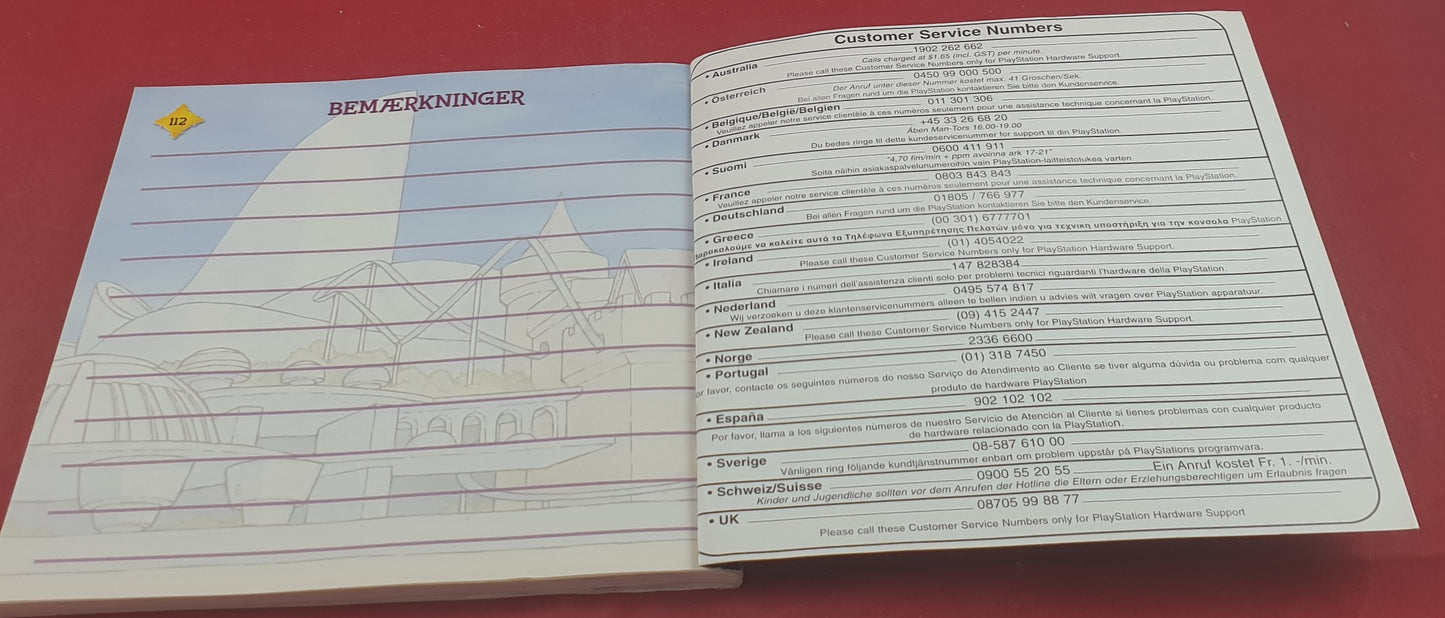 112
BEMÆRKNINGER
Customer Service Numbers
• Australia 1902 262 662
Calls charged at $1.65 (incl. GST) per minute.
Please call these Customer Service Numbers only for PlayStation Hardware Support.
• Österreich 0450 99 000 500
Der Anruf unter dieser Nummer kostet max. 41 Groschen/Sek.
Bei allen Fragen rund um die PlayStation kontaktieren Sie bitte den Kundenservice.
• Belgique/België/Belgien 011 301 306
Veuillez appeler notre service clientèle à ces numéros seulement pour une assistance technique concernant la PlayStation.
• Danmark +45 33 26 68 20
Åben Man-Tors 16.00-19.00
Du bedes ringe til dette kundeservicenummer for support til din PlayStation.
• Suomi 0600 411 911
"4,70 fim/min + ppm avoinna ark 17-21"
Soita näihin asiakaspalvelunumeroihin vain PlayStation-laitteistotukea varten
• France 0803 843 843
Veuillez appeler notre service clientèle à ces numéros seulement pour une assistance technique concernant la PlayStation.
• Deutschland 01805 / 766 977
Bei allen Fragen rund um die PlayStation kontaktieren Sie bitte den Kundenservice.
• Greece (00 301) 6777701
παρακαλούμε να καλείτε αυτά τα Τηλέφωνα Εξυπηρέτησης Πελατών μόνο για τεχνικη υποστήριξη για την κονσολα PlayStation
• Ireland (01) 4054022
Please call these Customer Service Numbers only for PlayStation Hardware Support.
• Italia 147 828384
Chiamare i numeri dell'assistenza clienti solo per problemi tecnici riguardanti l'hardware della PlayStation.
• Nederland 0495 574 817
Wij verzoeken u deze klantenservicenummers alleen te bellen indien u advies wilt vragen over PlayStation apparatuur.
• New Zealand (09) 415 2447
Please call these Customer Service Numbers only for PlayStation Hardware Support.
• Norge 2336 6600
• Portugal (01) 318 7450
or favor, contacte os seguintes números do nosso Serviço de Atendimento ao Cliente se tiver alguma dúvida ou problema com qualquer
produto de hardware PlayStation
• España 902 102 102
Por favor, llama a los siguientes números de nuestro Servicio de Atención al Cliente si tienes problemas con cualquier producto
de hardware relacionado con la PlayStation.
• Sverige 08-587 610 00
Vänligen ring följande kundtjänstnummer enbart om problem uppstår på PlayStations programvara.
• Schweiz/Suisse 0900 55 20 55 Ein Anruf kostet Fr. 1. -/min.
Kinder und Jugendliche sollten vor dem Anrufen der Hotline die Eltern oder Erziehungsberechtigen um Erlaubnis fragen
• UK 08705 99 88 77
Please call these Customer Service Numbers only for PlayStation Hardware Support